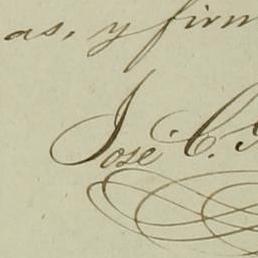 as, y firm
José C.